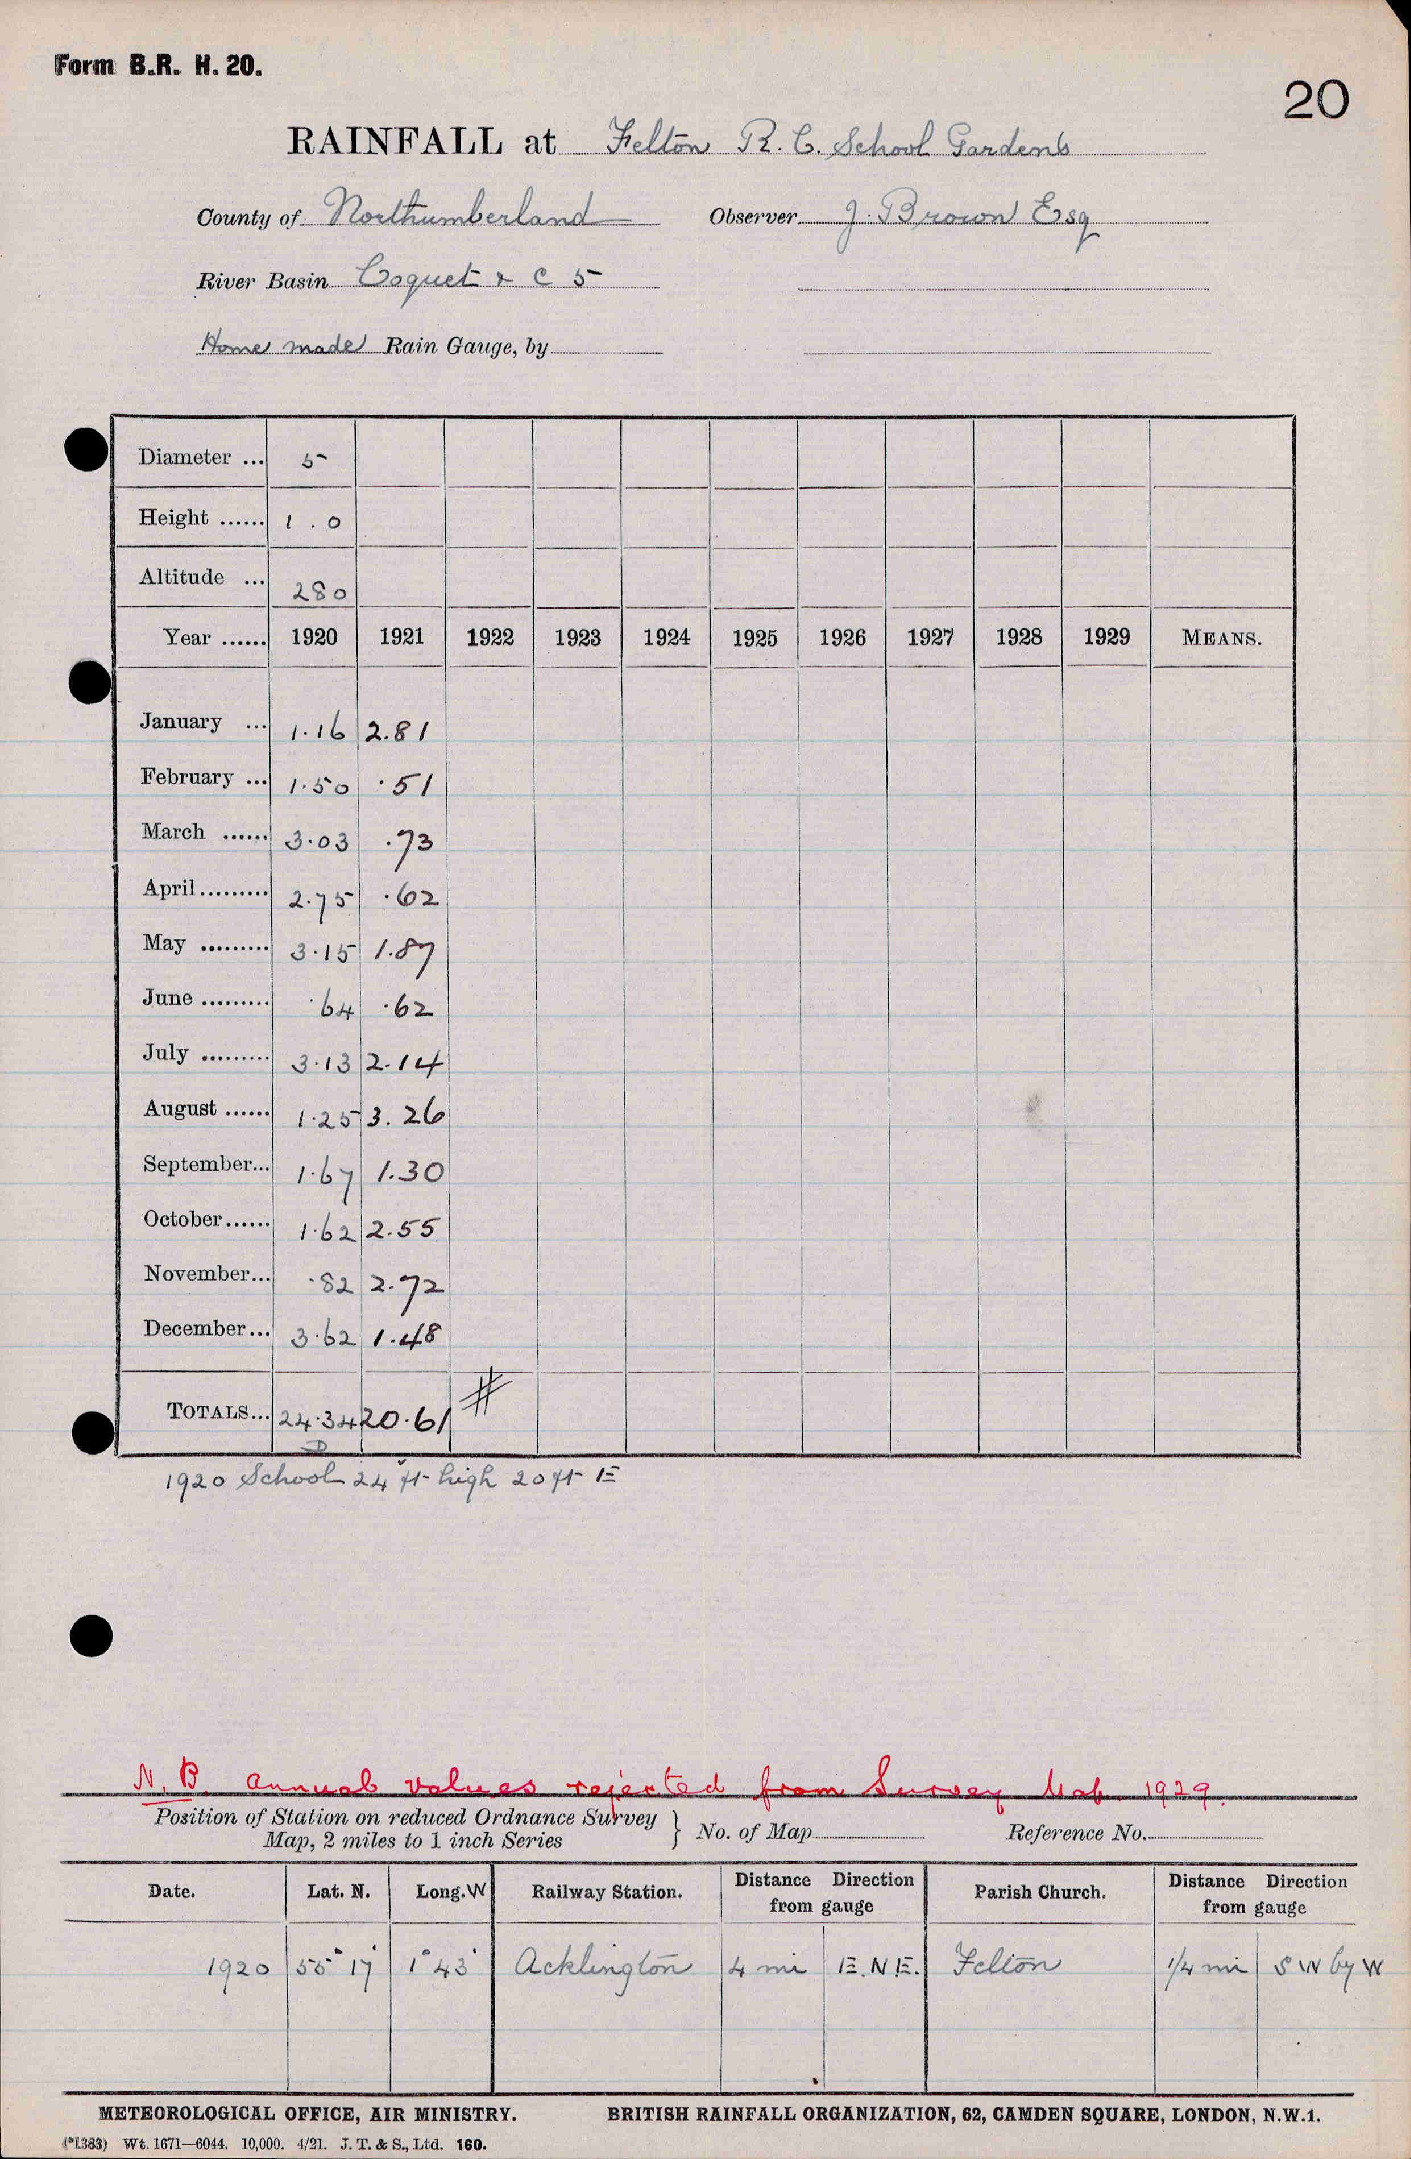 Form B.R. H. 20.
20
RAINFALL at Felton R. C. School Gardens
County of Northumberland Observer J. Brown Esq
River Basin Coquet & C 5
Home made Rain Gauge, by
Diameter ... 5
Height ...... 1.0
Altitude ... 280
Year ...... 1920 1921 1922 1923 1924 1925 1926 1927 1928 1929 MEANS.
January ... 1.16 2.81
February ... 1.50 .51
March ...... 3.03 .73
April ......... 2.75 .62
May ......... 3.15 1.87
June ......... .64 .62
July ......... 3.13 2.14
August ...... 1.25 3.26
September... 1.67 1.30
October...... 1.62 2.55
November... .82 2.72
December... 3.62 1.48
TOTALS... 24.34 20.61 #
D
1920 School 24 ft high 20 ft E
N.B. Annual values rejected from Survey Map 1929.
Position of Station on reduced Ordnance Survey
Map, 2 miles to 1 inch Series } No. of Map Reference No.
Date. Lat. N. Long. W Railway Station. Distance Direction from gauge Parish Church. Distance Direction from gauge
1920 55° 17' 1° 43' Acklington 4 mi E.N.E. Felton 1/4 mi S W by W
METEOROLOGICAL OFFICE, AIR MINISTRY. BRITISH RAINFALL ORGANIZATION, 62, CAMDEN SQUARE, LONDON, N.W.1.
(*1383) Wt. 1671—6044. 10,000. 4/21. J. T. & S., Ltd. 160.